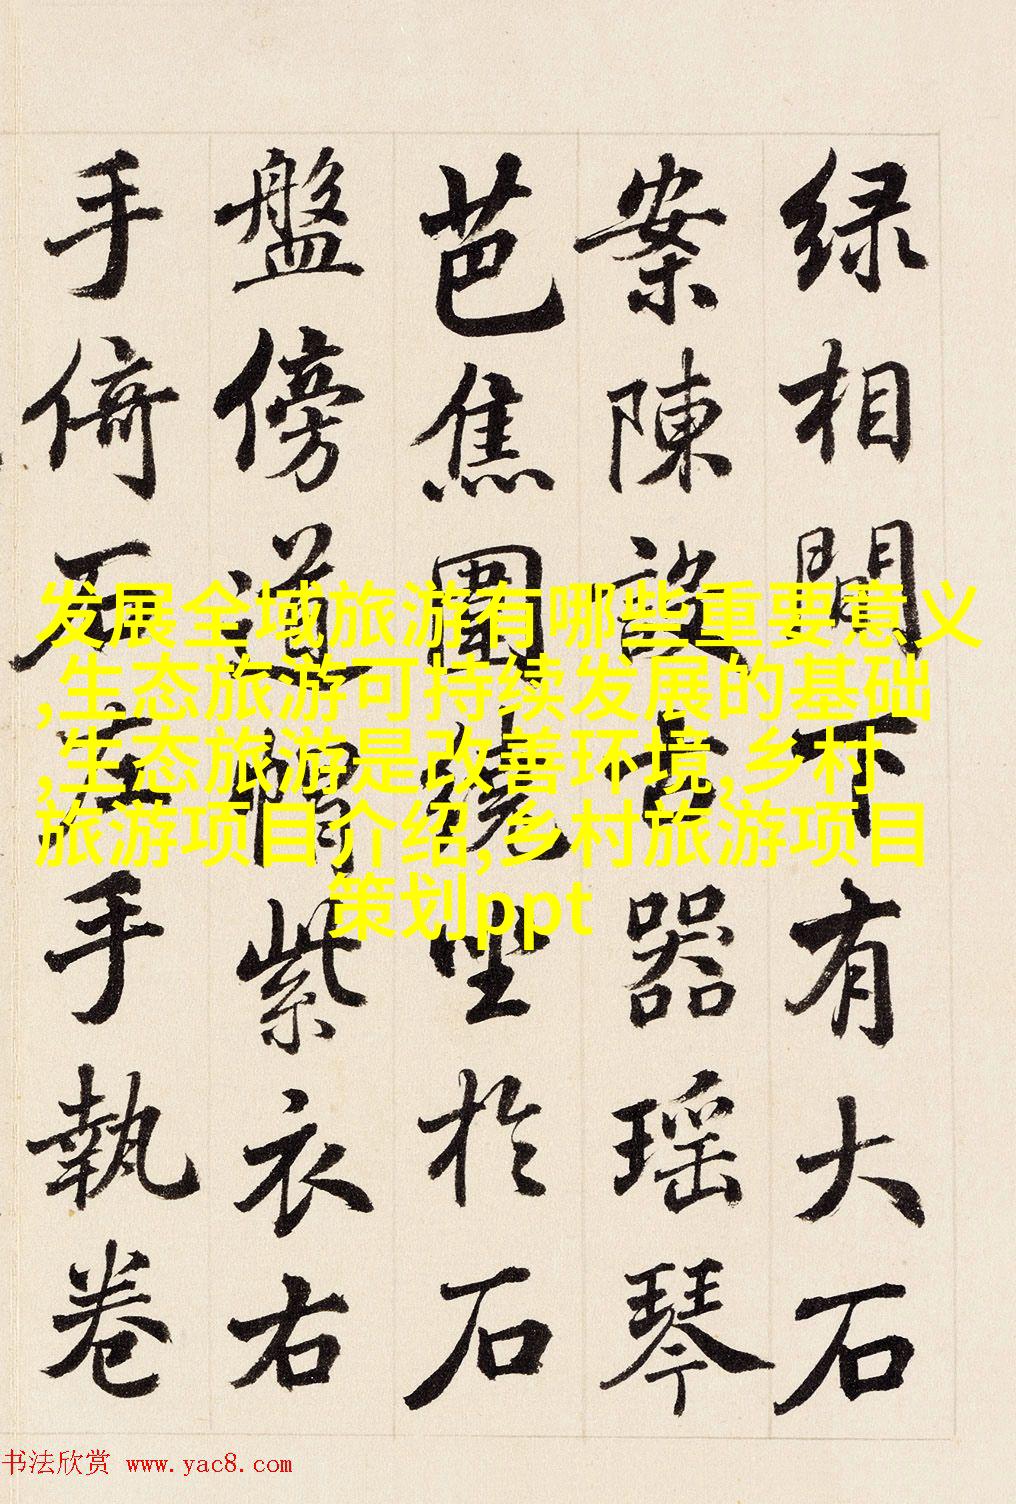 绿相間下有大石
案陳設古器瑶琴
芭焦圍繞坐於石
盤傍道帽紫衣右
手倚石左手執卷
发展全域旅游有哪些重要意义
,生态旅游可持续发展的基础
,生态旅游是改善环境,乡村
旅游项目介绍,乡村旅游项目
策划ppt
书法欣赏 www.yac8.com